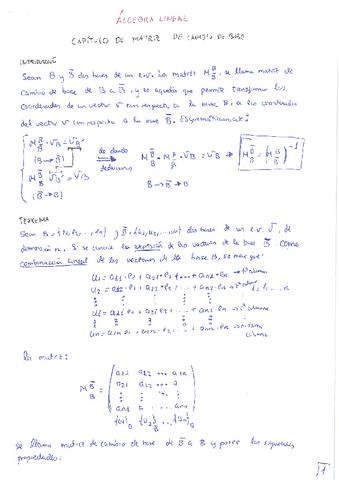 ÁLGEBRA LINEAL
CAPÍTULO DE MATRIZ DE CAMBIO DE BASE
INTRODUCCIÓN
Sean B y B̄ dos bases de un e.v. La matriz M, se llama matriz de
cambio de base de B a B̄, y es aquella que permite transformar las
coordenadas de un vector v con respecto a la base B, a las coordenadas
del vector v con respecto a la base B̄. Esquemáticamente:
(B→B̄)
de donde
deducimos
B→B̄→B
(B̄→B)
TEOREMA
Sean B={e1, e2, ..., en} y B̄={u1, u2, ..., un} dos bases de un e.v. V, de
dimensión n. Si se conoce la expresión de los vectores de la base B̄ como
combinación lineal de los vectores de la base B, se tiene que:
u1 = a11·e1 + a21·e2 + ... + an1·en → 1ª columna
u2 = a12·e1 + a22·e2 + ... + an2·en → 2ª columna
ui = a1i·e1 + a2i·e2 + ... + ani·en
un = a1n·e1 + a2n·e2 + ... + ann·en
La matriz:
a11 a12 ... a1n
a21 a22 ... a
an1 a ... ann
se llama matriz de cambio de base de B̄ a B y posee las siguientes
propiedades:
1